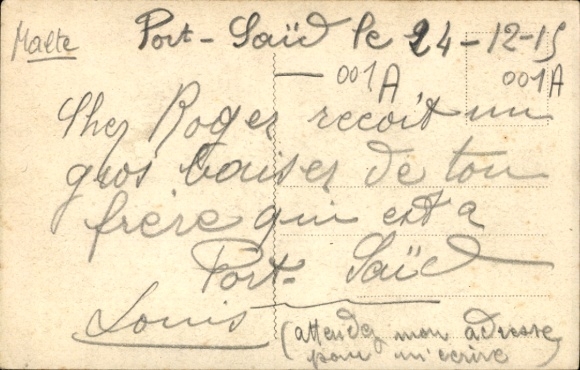 Malte
Port-Saïd le 24-12-15
001A
001A
Cher Roger recoit un
gros baiser de ton
frère qui est a
Port-Saïd
Louis
(attendez mon adresse
pour m'ecrire)